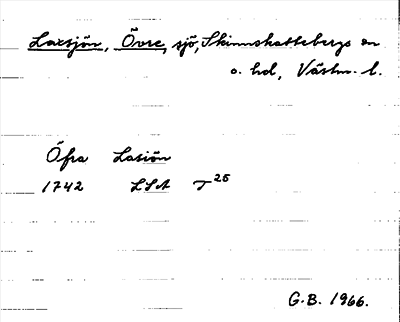 Laxsjön, Övre, sjö, Skinnskattebergs sn
o. hd, Västm. l.
Öfra Lasiön
1742 LSA T 25
G.B. 1966.